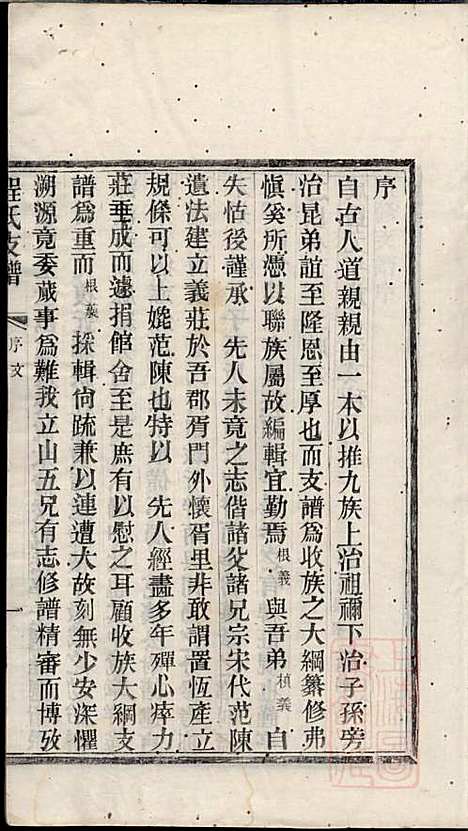 序
自古人道親親由一本以推九族上治祖禰下治子孫旁
治昆弟誼至隆恩至厚也而支譜爲收族之大綱纂修弗
愼奚所憑以聯族屬故編輯宜勤焉根義與吾弟楨義自
失怙後謹承先人未竟之志偕諸父諸兄宗宋代范陳
遺法建立義莊於吾郡胥門外懷胥里非敢謂置恆產立
規條可以上媲范陳也特以先人經畫多年殫心瘁力
莊垂成而遽捐館舍至是庶有以慰之耳顧收族大綱支
譜爲重而根義採輯尙疏兼以連遭大故刻無少安深懼
溯源竟委蕆事爲難我立山五兄有志修譜精審而博攷
程氏支譜
序文
一